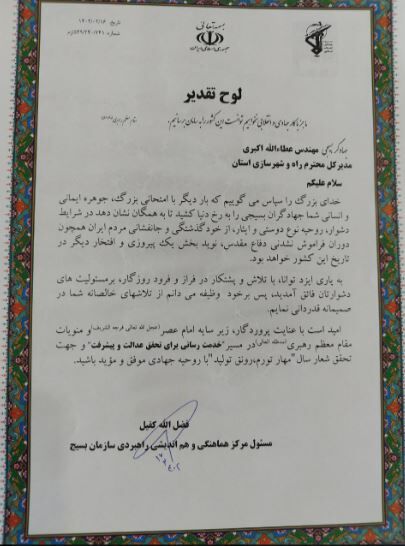 بسمه تعالی
جمهوری اسلامی ایران
تاریخ: ۱۴۰۲/۰۲/۱۶
لوح تقدیر
ما جز با کار جهادی و انقلابی نخواهیم توانست این کشور را به سامان برسانیم.
جهادگر بسیجی مهندس عطاءالله اکبری
مدیرکل محترم راه و شهرسازی استان
سلام علیکم
خدای بزرگ را سپاس می گوییم که بار دیگر با امتحانی بزرگ، جوهره ایمانی
و انسانی شما جهادگران بسیجی را به رخ دنیا کشید تا به همگان نشان دهد در شرایط
دشوار، روحیه نوع دوستی و ایثار، از خودگذشتگی و جانفشانی مردم ایران همچون
دوران فراموش نشدنی دفاع مقدس، نوید بخش یک پیروزی و افتخار دیگر در
تاریخ این کشور خواهد بود.
به یاری ایزد توانا، با تلاش و پشتکار در فراز و فرود روزگار، برمسئولیت های
دشوارتان فائق آمدید، پس برخود وظیفه می دانم از تلاشهای خالصانه شما در
صمیمانه قدردانی نمایم.
امید است با عنایت پروردگار، زیر سایه امام عصر(عجل الله تعالی فرجه الشریف)و منویات
مقام معظم رهبری(مدظله العالی)در مسیر"خدمت رسانی برای تحقق عدالت و پیشرفت" و جهت
تحقق شعار سال"مهار تورم،رونق تولید"با روحیه جهادی موفق و مؤید باشید.
فضل الله کفیل
مسئول مرکز هماهنگی و هم اندیشی راهبردی سازمان بسیج